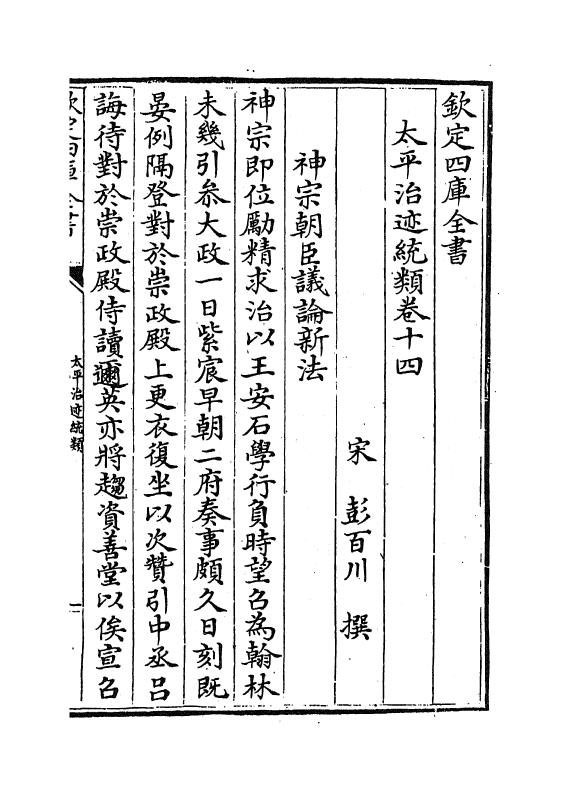 欽定四庫全書
太平治迹統類卷十四
宋 彭百川 撰
神宗朝臣議論新法
神宗即位勵精求治以王安石學行負時望召為翰林
未幾引叅大政一日紫宸早朝二府奏事頗久日刻既
晏例隔登對於崇政殿上更衣復坐以次贊引中丞吕
誨待對於崇政殿侍讀邇英亦將趨資善堂以俟宣召
欽定四庫全書
太平治迹統類
一